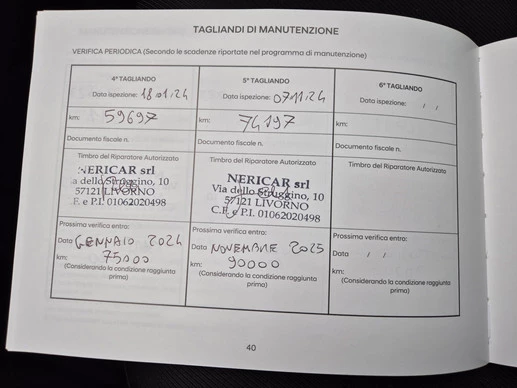 TAGLIANDI DI MANUTENZIONE
VERIFICA PERIODICA (Secondo le scadenze riportate nel programma di manutenzione)
4° TAGLIANDO
Data ispezione: 18.01.24
km: 59697
Documento fiscale n.
Timbro del Riparatore Autorizzato
NERICAR srl
a dello Struggino, 10
57121 LIVORNO
.F. e P.I. 01062020498
Prossima verifica entro:
Data GENNAIO 2024
km: 75000
(Considerando la condizione raggiunta
prima)
5° TAGLIANDO
Data ispezione: 07.11.24
km: 74197
Documento fiscale n.
Timbro del Riparatore Autorizzato
NERICAR srl
Via dello Struggino, 10
57121 LIVORNO
C.F. e P.I. 01062020498
Prossima verifica entro:
Data NOVEMBRE 2025
km: 90000
(Considerando la condizione raggiunta
prima)
6° TAGLIANDO
Data ispezione: / /
km:
Documento fiscale n.
Timbro del Riparatore Autorizzato
Prossima verifica entro:
Data / /
km:
(Considerando la condizione raggiunta
prima)
40